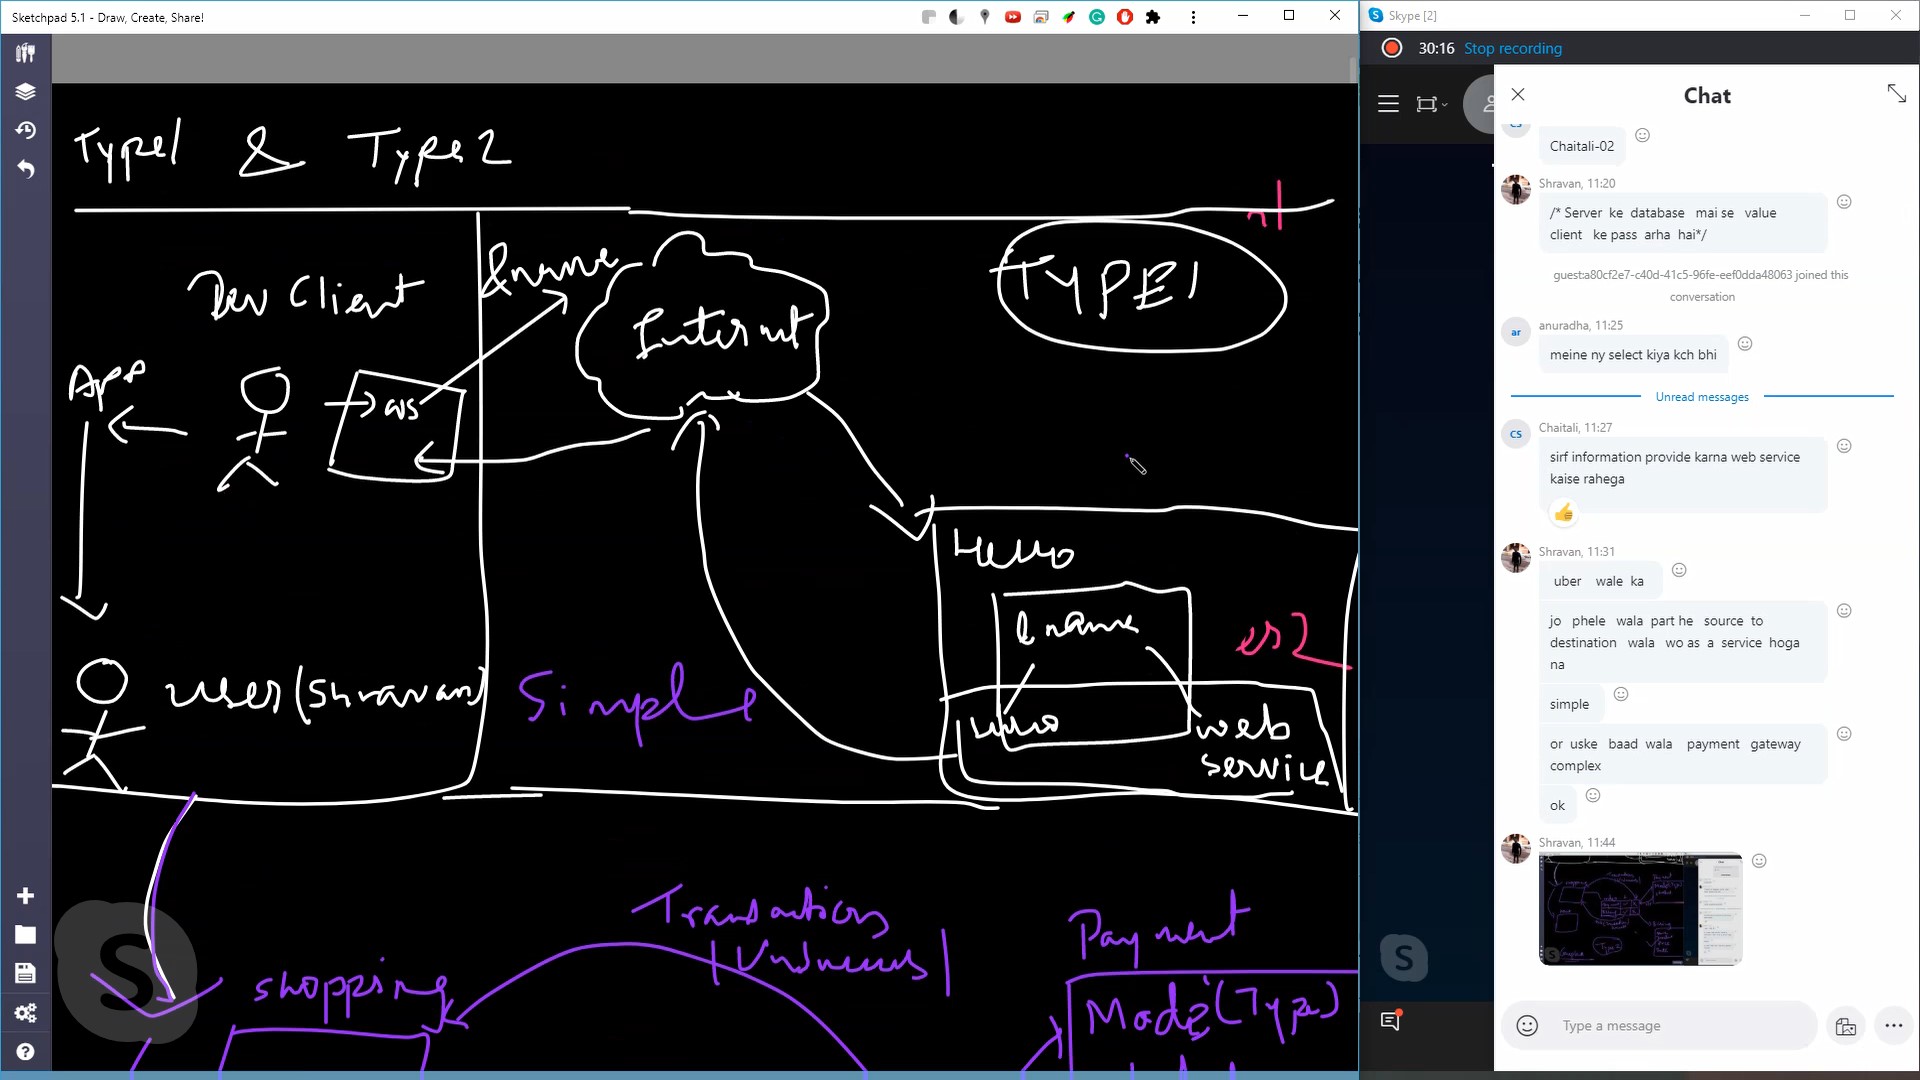 Sketchpad 5.1 - Draw, Create, Share!
Type1 & Type2
Dev Client
&name
Internet
TYPE1
App
ws
Hello
&name
Hello
web
service
user(Shravan)
Simple
Transactions
shopping
Payment
Mode(Type)
Skype [2]
30:16 Stop recording
Chat
CS
Chaitali-02
Shravan, 11:20
/* Server ke database mai se value
client ke pass arha hai*/
guest:a80cf2e7-c40d-41c5-96fe-eef0dda48063 joined this
conversation
ar
anuradha, 11:25
meine ny select kiya kch bhi
Unread messages
CS
Chaitali, 11:27
sirf information provide karna web service
kaise rahega
Shravan, 11:31
uber wale ka
jo phele wala part he source to
destination wala wo as a service hoga
na
simple
or uske baad wala payment gateway
complex
ok
Shravan, 11:44
Type a message